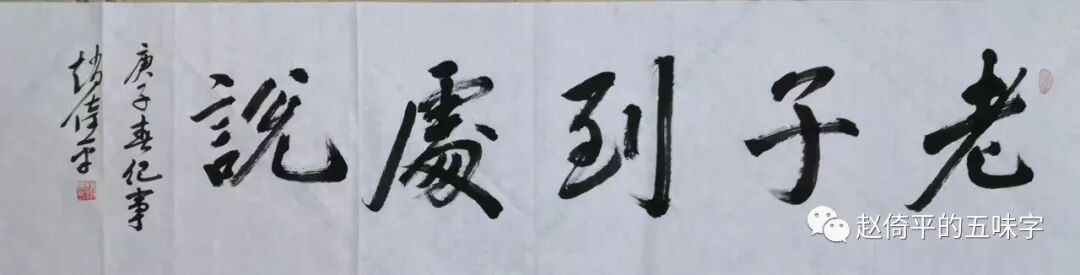 老子到處説
庚子春纪事
趙倚平
赵倚平的五味字